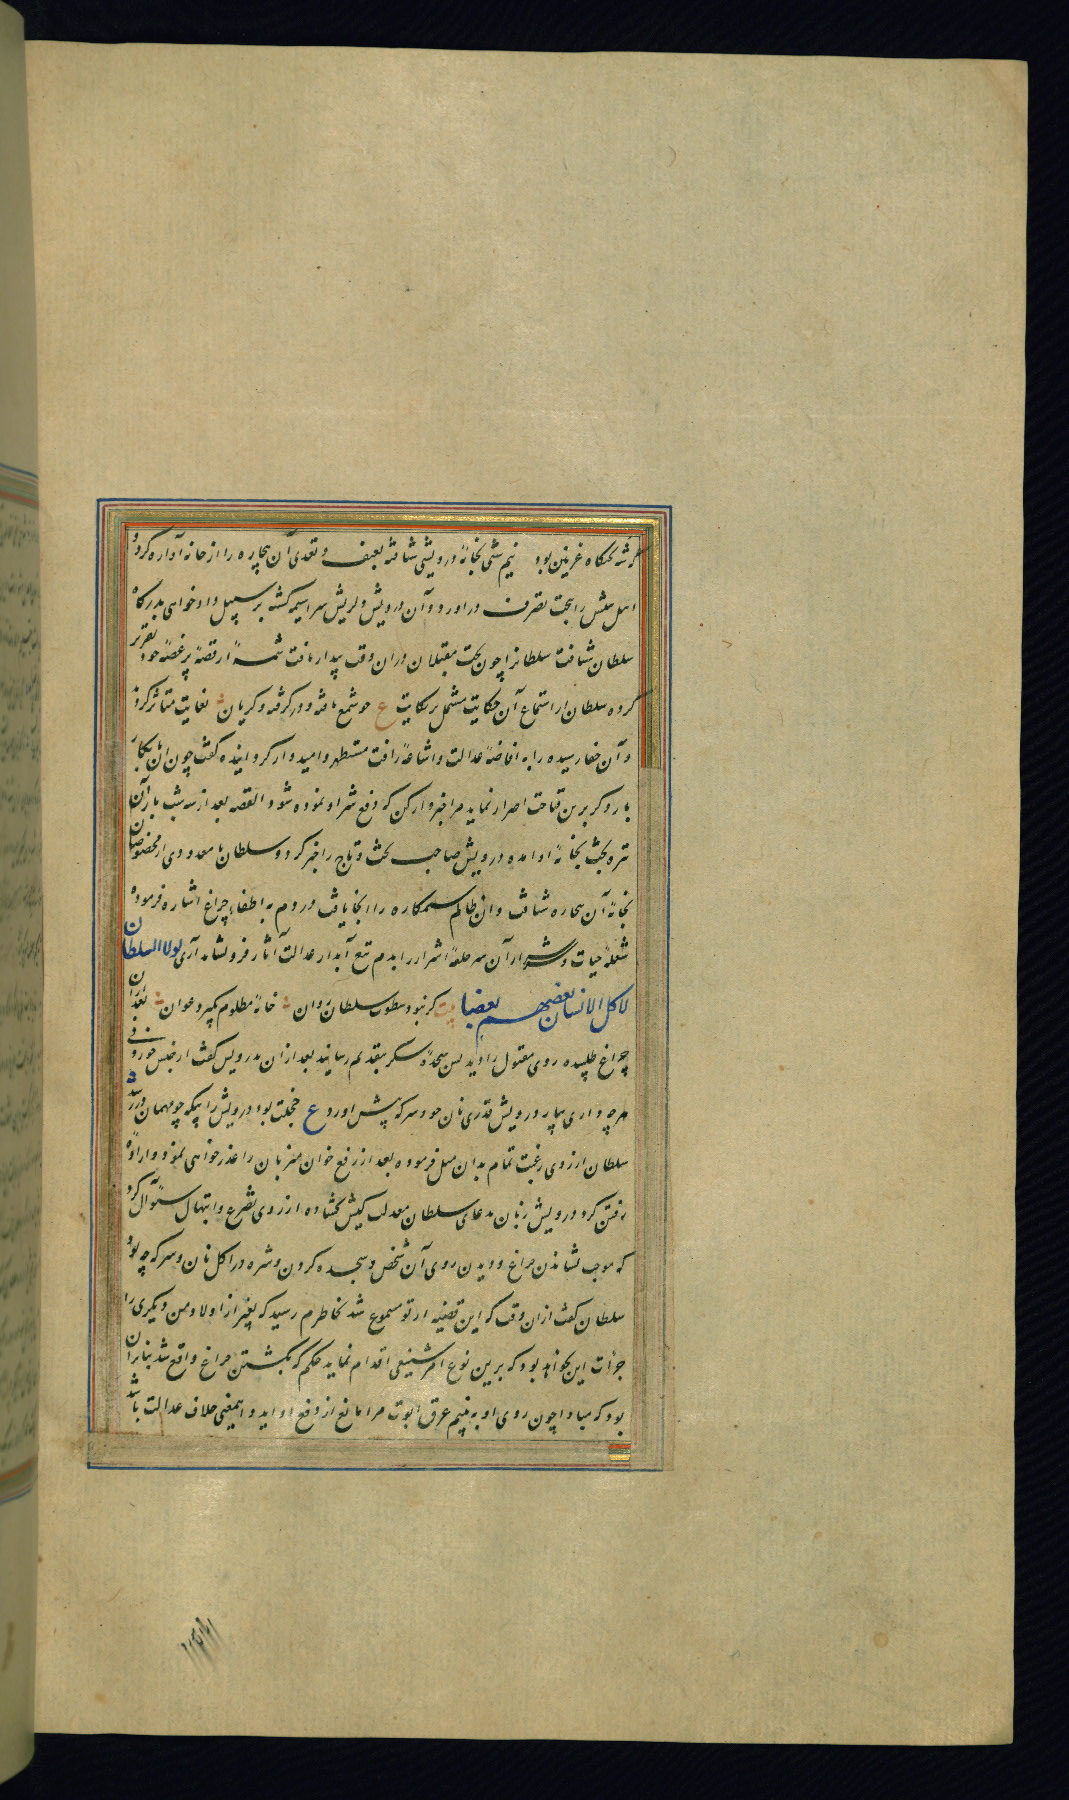 گوشه تختگاه غزنین بود نیم شبی بخانهٔ درویشی شتافته بعنف و تعدی آن بیچاره را از خانه آواره کرد و
اهل بیتش را بتحت تصرف دراورد و آن درویش دلریش سراسیمه گشته بر سبیل دادخواهی بدرگاه
سلطان شتافت سلطانرا چون بخت مقبلان دران وقت بیدار یافت شمهٔ از قصهٔ پر غصهٔ خود بتقریر
کرده سلطان از استماع آن حکایت مشتمل بر شکایت ع چو شمع تافته و در گرفته و گریان شد بغایت متاثر کردید
و آن جفا رسیده را به افاضهٔ عدالت و اشاعهٔ رافت مستظهر و امیدوار گردانیده گفت چون آن نابکار
بار دگر برین قباحت اصرار نماید مرا خبردار کن که دفع شر او نموده شود القصه بعد از سه شب باز آن
تیره بخت بخانهٔ او امده درویش صاحب تخت و تاج را خبر کرد و سلطان با معدودی از مخصوصان
بخانهٔ آن بیچاره شتافت و ان ظالم ستمکاره را انجا یافت در دم به اطفاء چراغ اشاره فرموده
شعلهٔ حیات و شرار آن سر حلقهٔ اشرار را بدم تیغ آبدار عدالت آثار فرو نشاند آری لولا السلطان
لاکل الانسان بعضهم بعضا بیت گر نبود سطوت سلطان روان خانهٔ مظلوم بگیرد عوان بعد ازان
چراغ طلبیده روی مقتول را دید پس سجدهٔ شکر بتقدیم رسانید بعد ازان بدرویش گفت از جنس خوردنی
هر چه داری بیار درویش قدری نان جو و سرکه پیش اورد ع خجلت بود درویش را بیگه چو مهمان در رسد
سلطان از روی رغبت تمام بدان میل فرموده بعد از رفع خوان میزبان را عذر خواهی نمود و ارادهٔ
رفتن کرد درویش زبان بدعای سلطان معدلت کیش بگشاده از روی تضرع و ابتهال سئوال کرد
که موجب نشاندن چراغ و دیدن روی آن شخص و سجده کردن و شره در اکل نان و سرکه چه بود
سلطان گفت ازان وقت که این قضیه از تو مسموع شد بخاطرم رسید که بغیر از اولاد من دیگری را
جرأت این نخواهد بود که برین نوع امر شنیعی اقدام نماید حکم که بکشتن چراغ واقع شد بنابران
بود که مبادا چون روی او به بینم عرق ابوت مرا مانع از دفع او آید و اینمعنی خلاف عدالت باشد